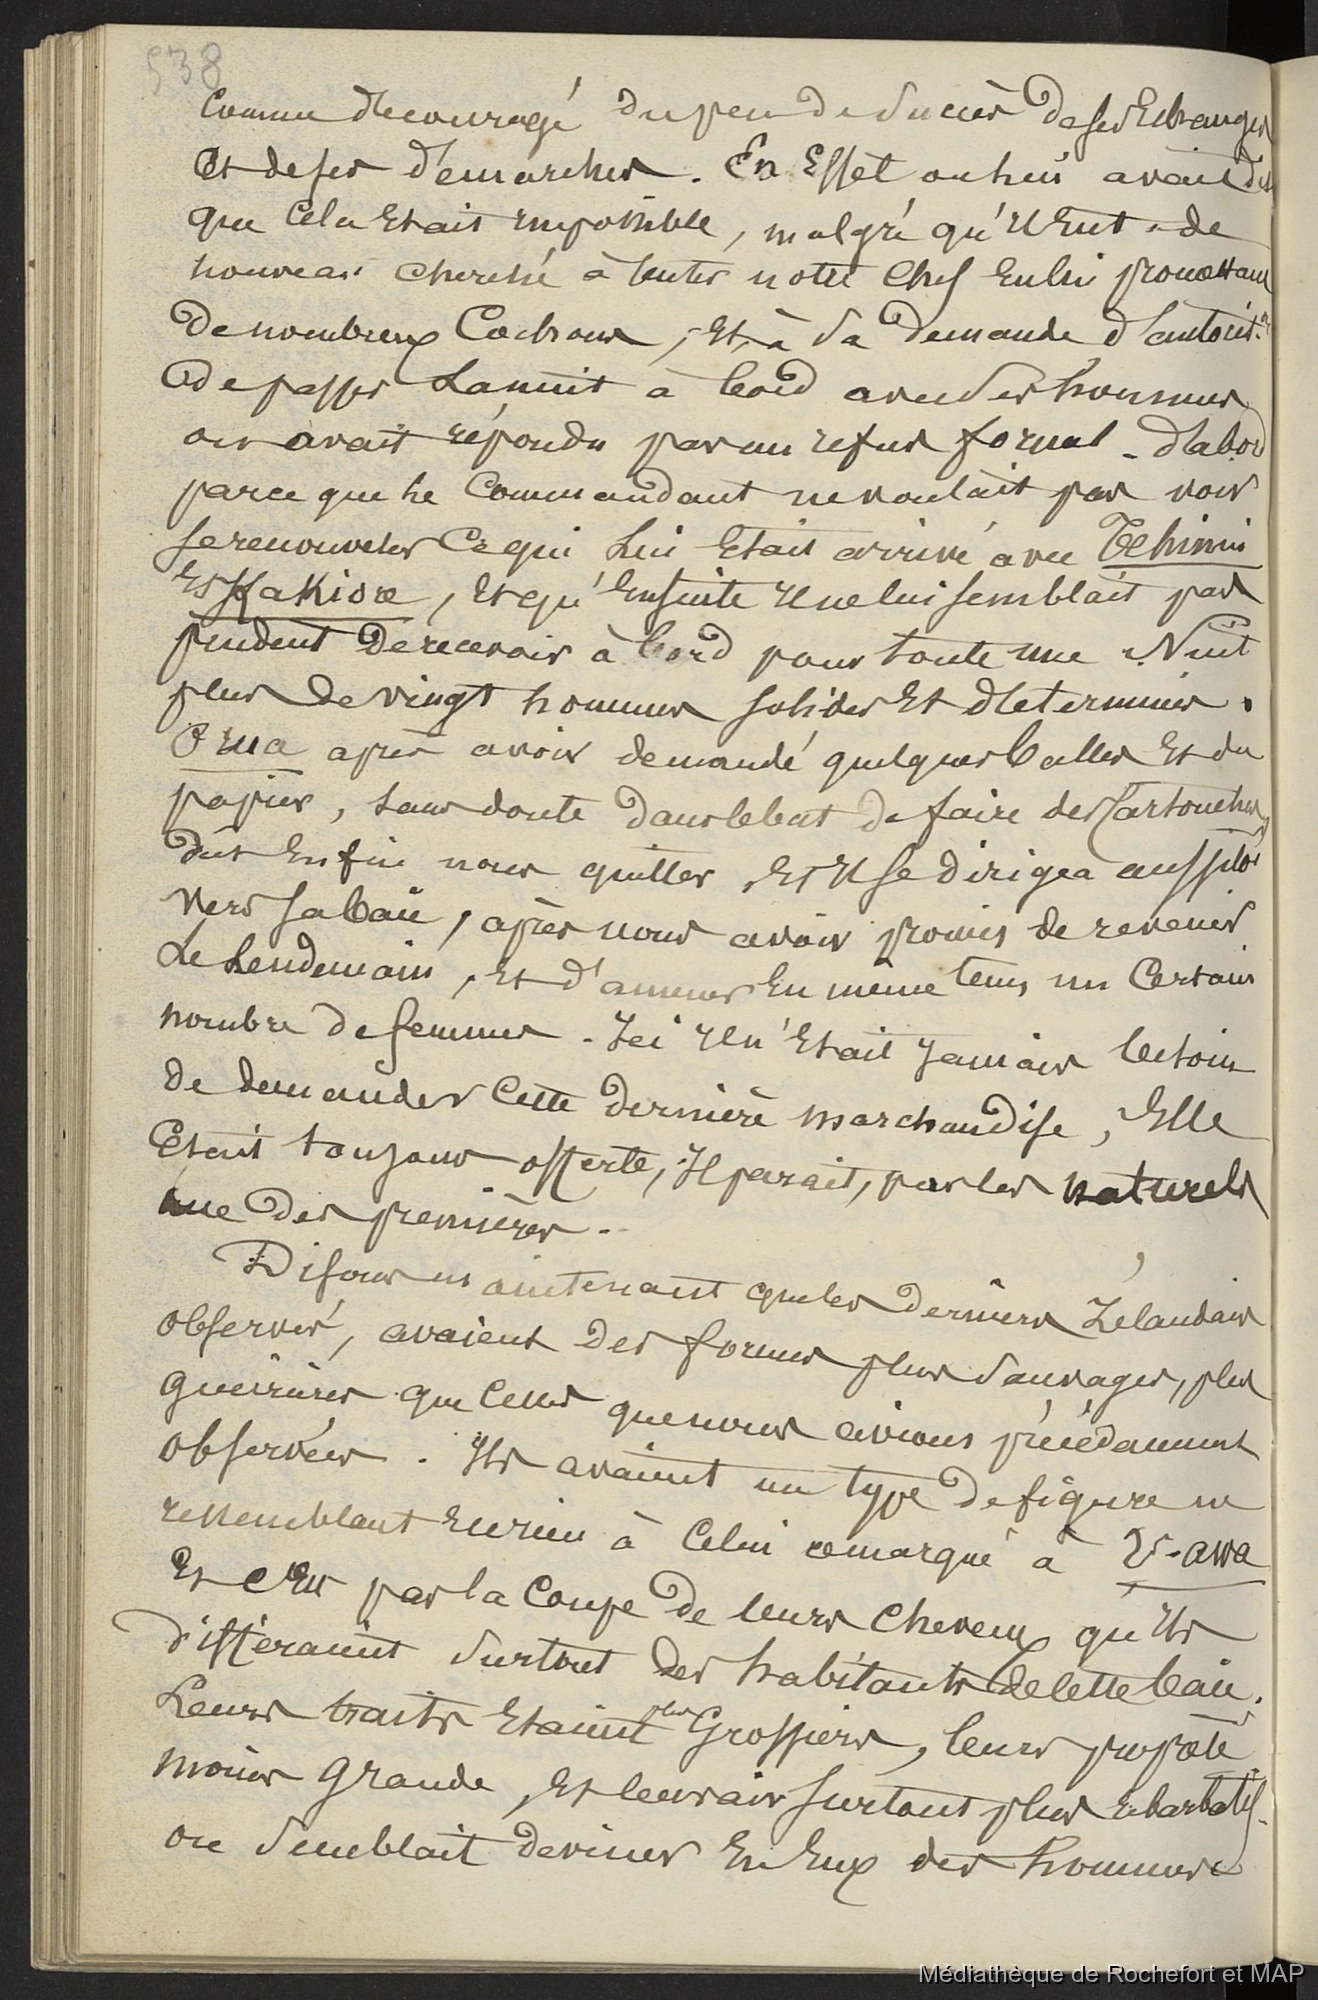 538
comme découragé du peu de succès de ses Echanges
Et de ses démarches. En Effet on lui avait dit
que Cela Etait impossible, malgré qu'il Eut de
nouveau cherché à tenter notre Chef En lui promettant
De nombreux Cochons, Et, à sa demande d'autoris.on
De passer La nuit à bord avec ses hommes
on avait répondu par un refus formel. D'abord
parce que le Commandant ne voulait pas voir
se renouveler Ce qui Lui Etait arrivé avec Tehinui
Et Kakiore, Et qu'Ensuite il ne lui semblait pas
prudent De recevoir à bord pour toute une Nuit
plus De vingt hommes solides Et déterminés.
Orua après avoir demandé quelques balles Et du
papier, sans doute dans le but de faire des Cartouches
dut Enfin nous quitter, Et Il se dirigea aussitôt
vers sa baie, après nous avoir promis de revenir
Le Lendemain, Et d'amener En même tems un Certain
nombre de femmes. Ici Il n'Etait Jamais besoin
de demander Cette dernière marchandise, Elle
Etait toujours offerte, Il parait, par les naturels
une des premières.
Disons maintenant que les derniers Zélandais
observés, avaient des formes plus sauvages, plus
guerrières que Celles que nous avions précédamment
observées. Ils avaient un type de figure ne
ressemblant En rien à Celui remarqué à U-awa
Et c'Est par la Coupe de leurs cheveux qu'ils
différaient surtout des habitants de Cette baie.
Leurs traits Etaient plus Grossiers, leurs propreté
moins grande, Et leurs airs surtout plus rebarbatifs.
on semblait deviner En Eux des hommes
Médiathèque de Rochefort et MAP